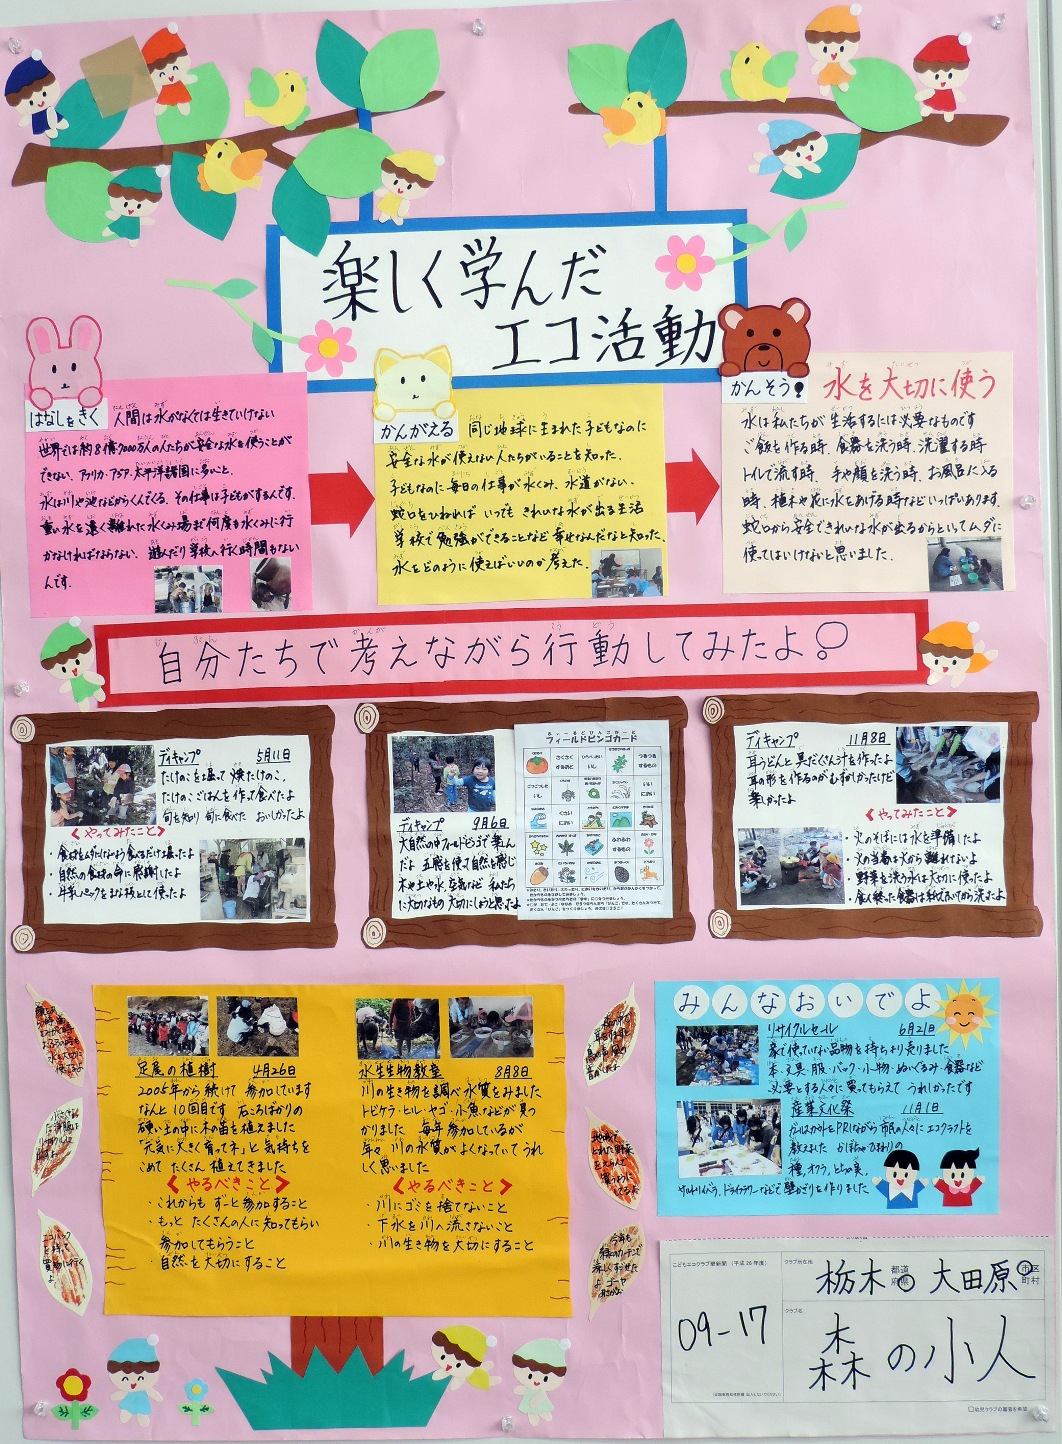 楽しく学んだ
エコ活動
はなしをきく
人間は水がなくては生きていけない
世界では約8億7000万人の人たちが安全な水を使うことが
できない。アフリカ・アジア・太平洋諸国に多いこと。
水は川や池などからくんでくる。その仕事は子どもがするんです。
重い水を遠く離れた水くみ場まで何度も水くみに行
かなければならない。遊んだり学校へ行く時間もない
んです。
かんがえる
同じ地球に生まれた子どもなのに
安全な水が使えない人たちがいることを知った。
子どもなのに毎日の仕事が水くみ、水道がない。
蛇口をひねれば いつでも きれいな水が出る生活
学校で勉強ができることなど幸せなんだなと知った。
水をどのように使えばいいのか考えた。
かんそう!
水を大切に使う
水は私たちが生活するには必要なものです
ご飯を作る時、食器を洗う時、洗濯する時
トイレで流す時、手や顔を洗う時、お風呂に入る
時、植木や花に水をあげる時などいっぱいあります。
蛇口から安全できれいな水が出るからといってムダに
使ってはいけないと思いました。
自分たちで考えながら行動してみたよ!
デイキャンプ 5月11日
たけのこを堀って 焼たけのこ,
たけのこごはんを作って食べたよ
旬を知り 旬に食べた おいしかったよ
<やってみたこと>
・食材をムダにしないよう食べるだけ堀ったよ
・自然の食材の命に感謝したよ
・牛乳パックをまな板として使ったよ
デイキャンプ 9月6日
大自然の中フィールドビンゴで楽しん
だよ 五感を使って自然を感じ
木や土や水、空気など 私たち
に大切なもの 大切にしようと思ったよ
フィールドビンゴカード
デイキャンプ 11月8日
耳うどんと具だくさん汁を作ったよ
耳の形を作るのがむずかしかったけど
楽しかったよ
<やってみたこと>
・火のそばには水を準備したよ
・火の当番は火から離れないよ
・野菜を洗う水は大切に使ったよ
・食べ終った食器は紙でふいてから洗ったよ
足尾の植樹 4月26日
2005年から続けて 参加しています
なんと10回目です 石ころばかりの
硬い土の中に木の苗を植えました
「元気に大きく育ってネ」と 気持ちを
こめて たくさん 植えてきました
<やるべきこと>
・これからも ずーと参加すること
・もっと たくさんの人に知ってもらい
参加してもらうこと
・自然を大切にすること
水生生物教室 8月8日
川の生き物を調べ水質をみました
トビケラ・ヒル・ヤゴ・小魚などが見つ
かりました 毎年参加しているが
年々 川の水質がよくなっていてうれ
しく思いました
<やるべきこと>
・川にゴミを捨てないこと
・下水を川へ流さないこと
・川の生き物を大切にすること
みんなおいでよ
リサイクルセール 6月21日
家で使っていない品物を持ちより売りました
本・文具・服・バック・小物・ぬいぐるみ・食器など
必要とする人々に買ってもらえて うれしかったです
産業文化祭 11月1日
PRしながら市民の人々にエコクラフトを
教えました かぼちゃ・ひまわりの
種,オクラ,とちの実,
ドライフラワーなどで壁かざりを作りました
エコバックを
持って
買物に行く
よ
今年も
緑のカーテンで
涼しくすごせた
よ ゴーヤ
こどもエコクラブ壁新聞(平成26年度)
クラブ所在地
栃木 都道府県 大田原 市区町村
09-17
クラブ名
森の小人
□幼児クラブの審査を希望